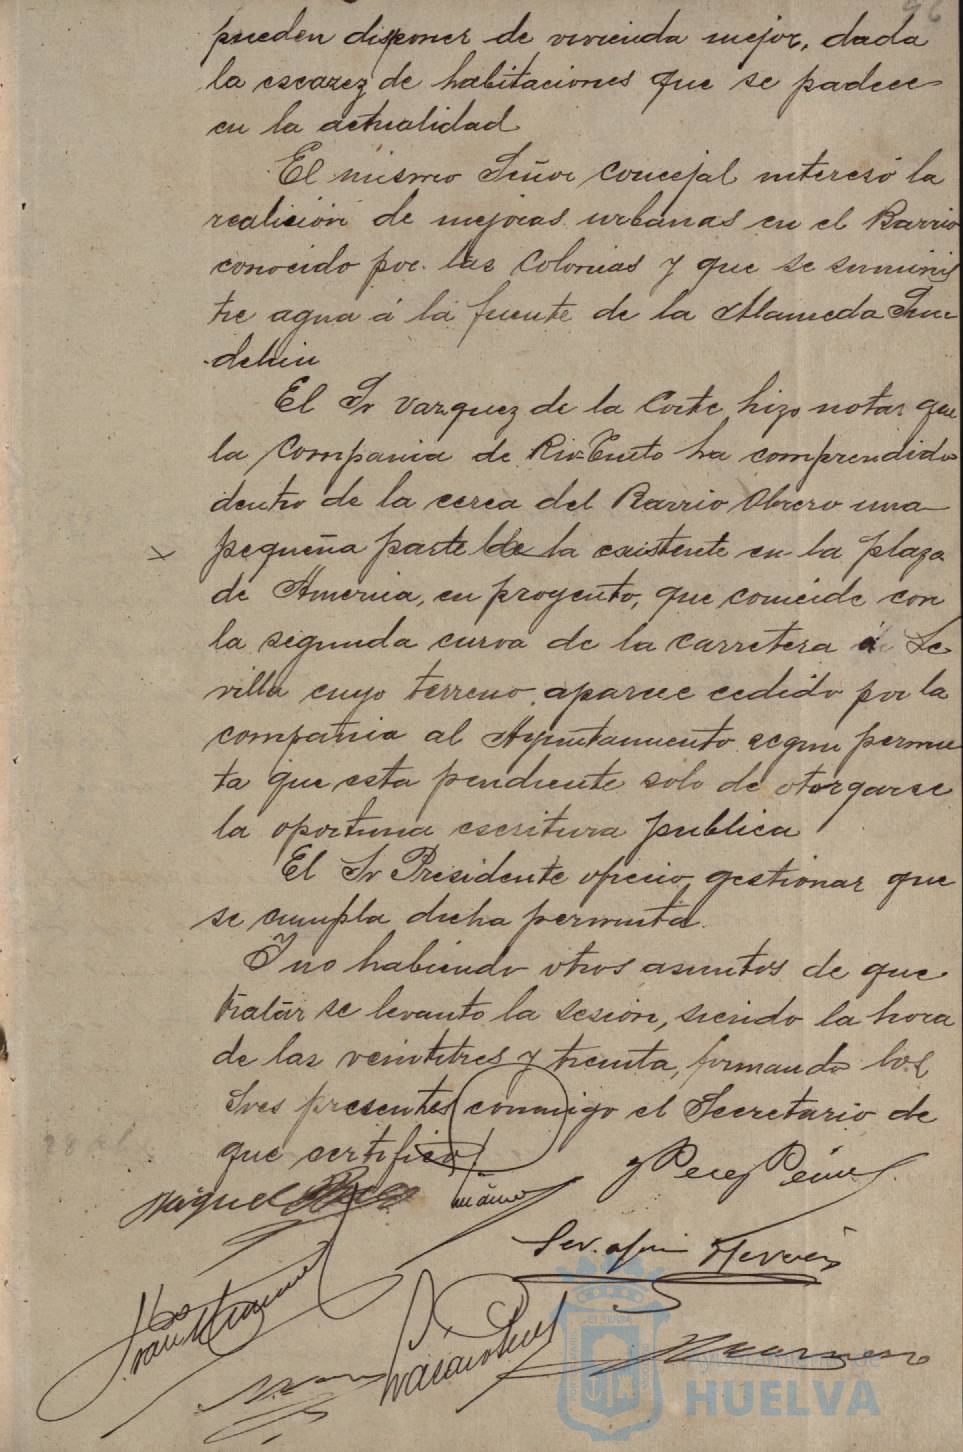 96
pueden disponer de vivienda mejor, dada
la escasez de habitaciones que se padece
en la actualidad
El mismo Señor Concejal interesó la
realición de mejoras urbanas en el Barrio
conocido por las Colonias y que se suminis
tre agua á la fuente de la Alameda Sun
dehin
El Sr Vazquez de la Corte hizo notar que
la Compania de Rio-Tinto ha comprendido
dentro de la cerca del Barrio Obrero una
pequeña parte de la existente en la plaza
de America, en proyecto, que coincide con
la segunda curva de la carretera á Se
villa cuyo terreno aparece cedido por la
compañia al Ayuntamiento segun permu
ta que esta pendiente solo de otorgarse
la oportuna escritura publica
El Sr Presidente ofrecio gestionar que
se cumpla dicha permuta.
Y no habiendo otros asuntos de que
tratar se levanto la sesión, siendo la hora
de las veintitres y treinta, firmando los
Sres presentes conmigo el Secretario de
que certifico
Miguel
Serafin
Ayuntamiento de
HUELVA